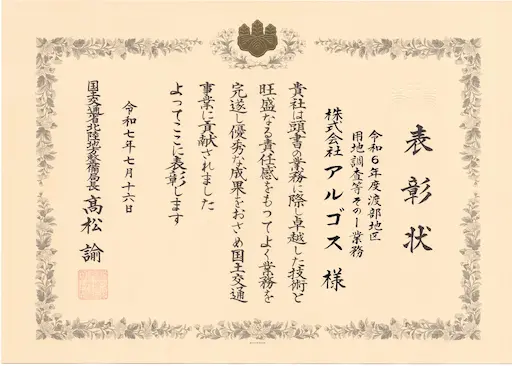 表彰状
令和6年度渡部地区
用地調査等その1業務
株式会社アルゴス様
貴社は頭書の業務に際し卓越した技術と
旺盛なる責任感をもつてよく業務を
完遂し優秀な成果をおさめ国土交通
事業に貢献されました
よってここに表彰します
令和七年七月十六日
国土交通省北陸地方整備局長 髙松諭